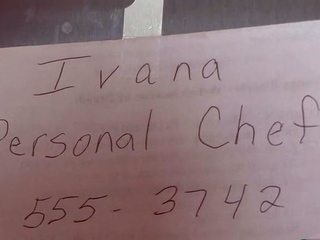 Ivana
Personal Chef
555-3742